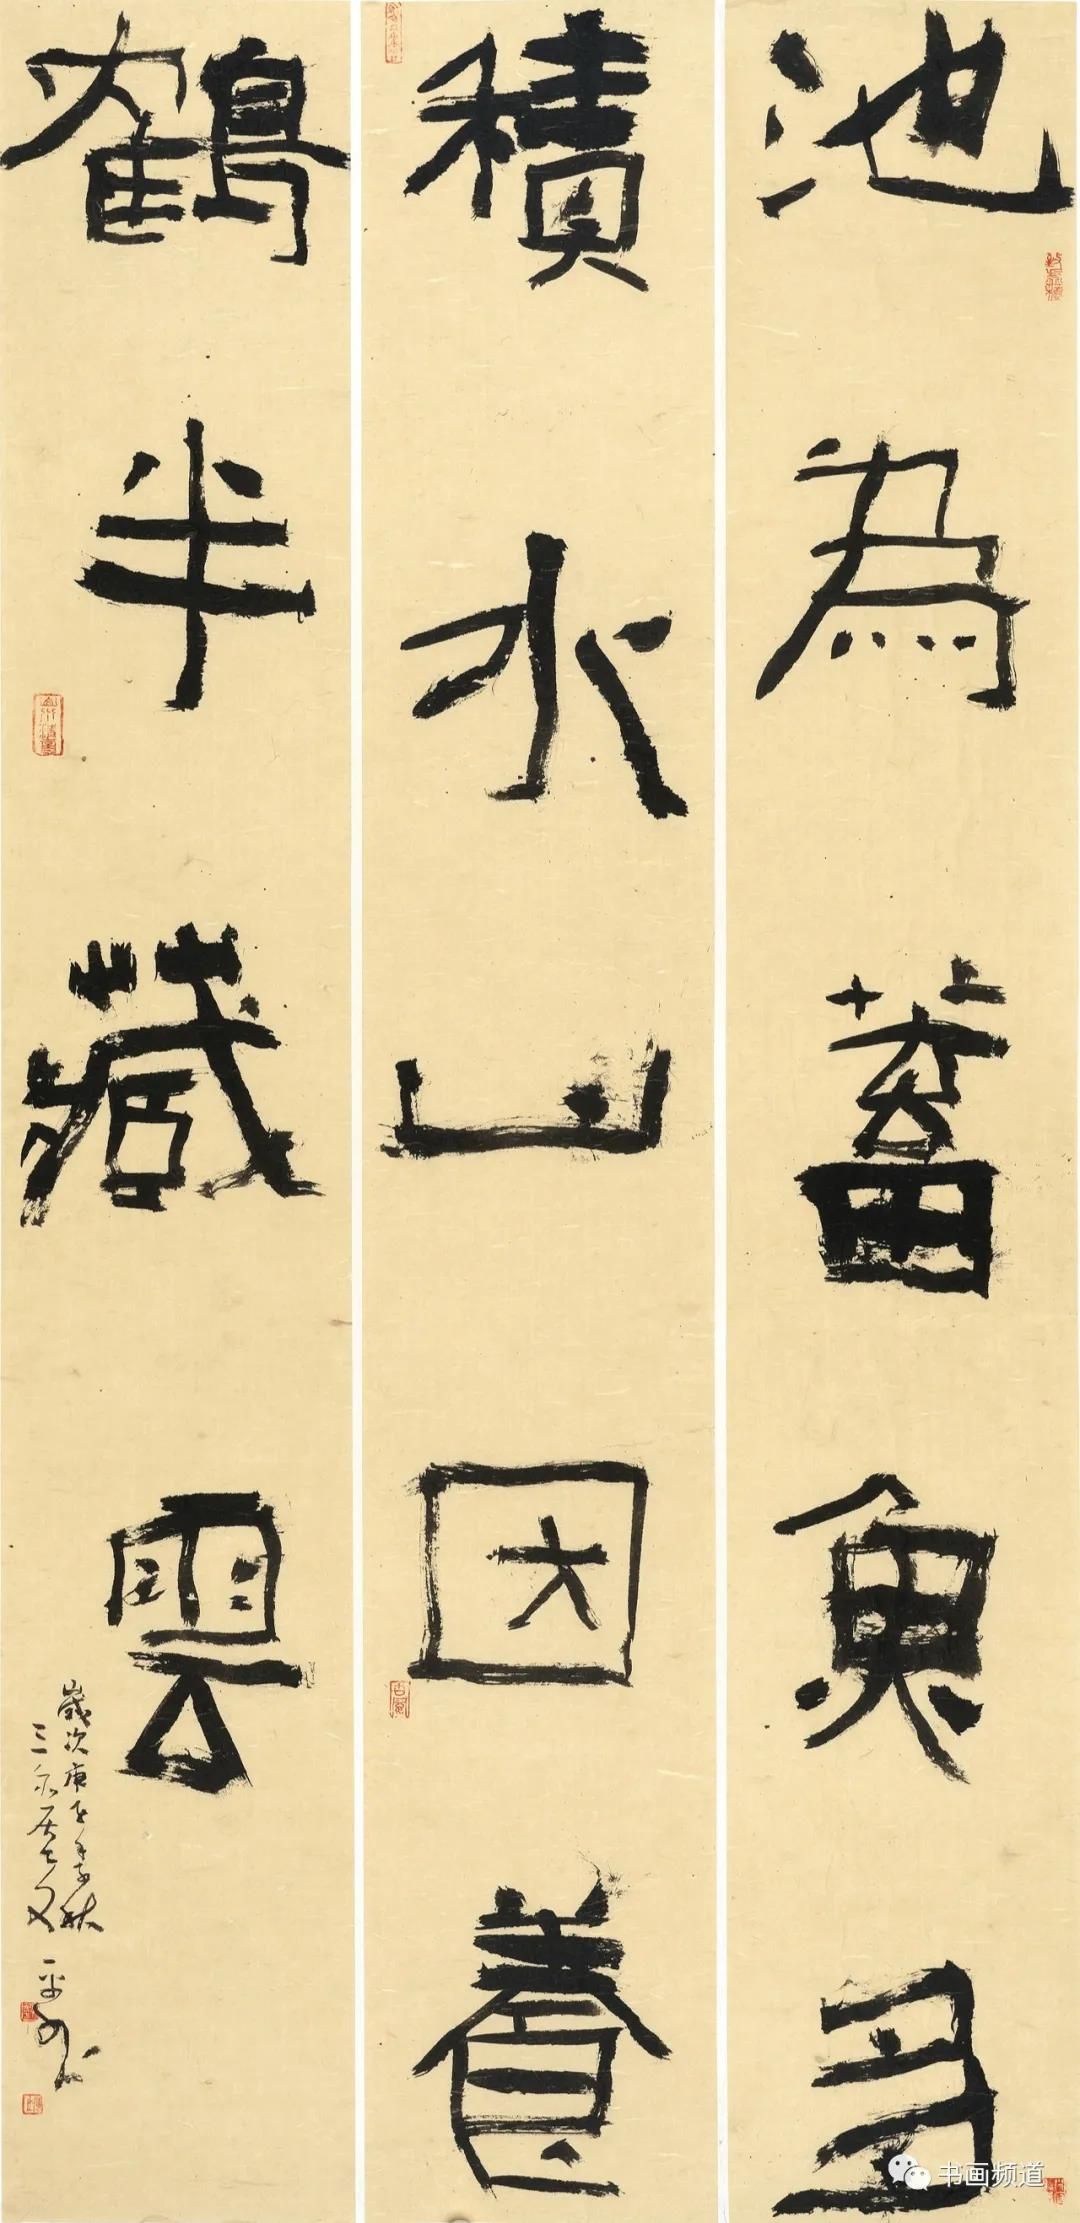 池為蓄魚多
積水山因養
鶴半藏雲
歲次庚子季秋
三永居又
平
书画频道